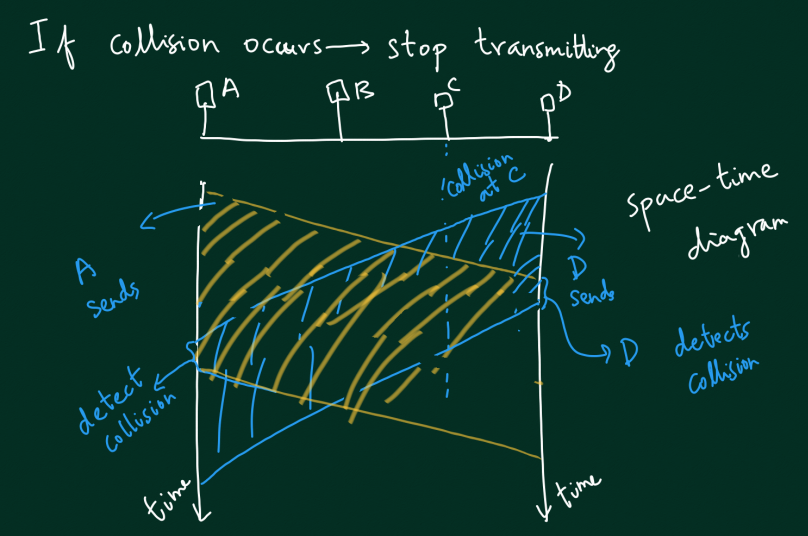 If collision occurs → stop transmitting
A
B
C
D
collision
at C
space-time
diagram
A
sends
D
sends
D detects
collision
detect
collision
time
time